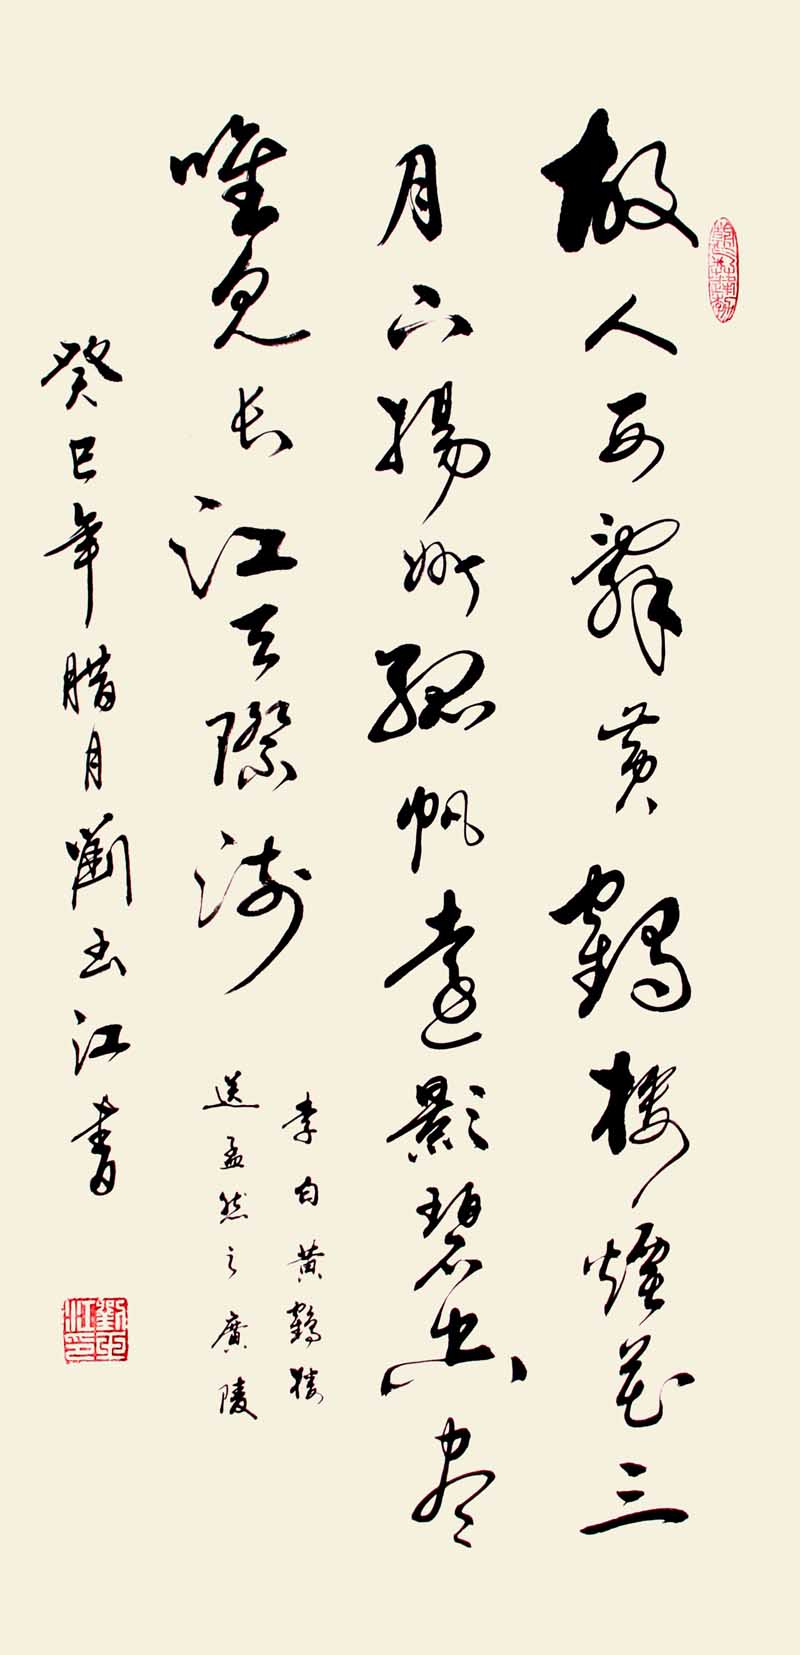 故人西辭黄鶴樓煙花三
月下揚州孤帆遠影碧空尽
唯見长江天際流
李白黄鶴樓
送孟然之廣陵
癸巳年腊月劉玉江書
劉玉江印